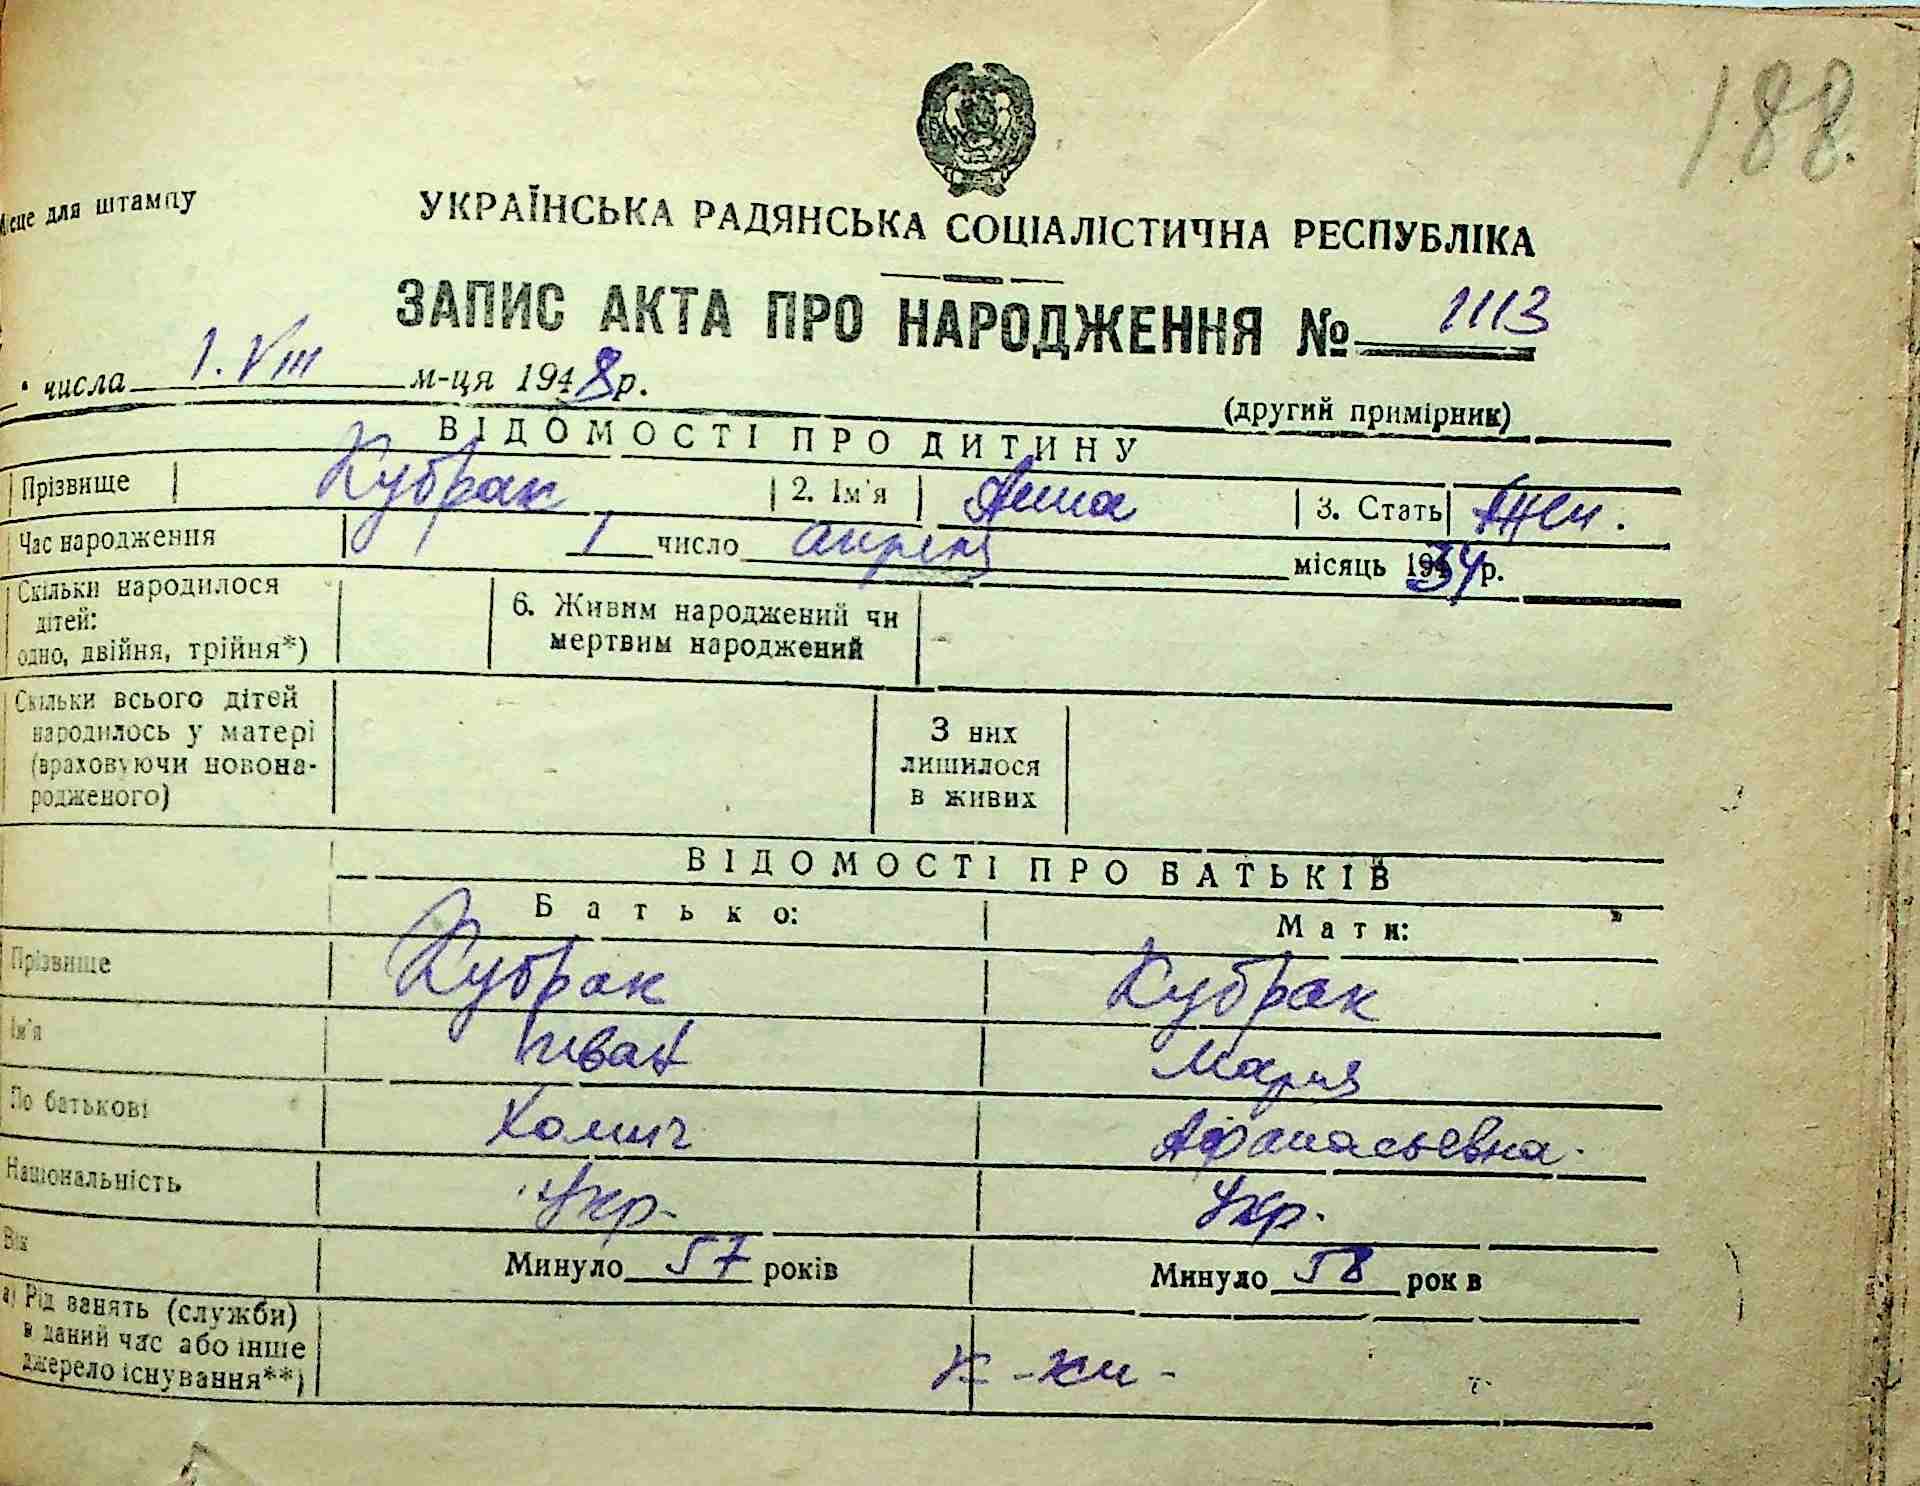 188.
Місце для штампу
УКРАЇНСЬКА РАДЯНСЬКА СОЦІАЛІСТИЧНА РЕСПУБЛІКА
ЗАПИС АКТА ПРО НАРОДЖЕННЯ № 1113
" числа 1.VIII м-ця 1948р.
(другий примірник)
ВІДОМОСТІ ПРО ДИТИНУ
Прізвище Кубрак 2. Ім'я Анна 3. Стать Жен.
Час народження 1 число апреля місяць 1934р.
Скільки народилося
дітей:
одно, двійня, трійня*)
6. Живим народжений чи
мертвим народжений
Скільки всього дітей
народилось у матері
(враховуючи новона-
родженого)
З них
лишилося
в живих
ВІДОМОСТІ ПРО БАТЬКІВ
Батько: Мати:
Прізвище Кубрак Кубрак
Ім'я Иван Мария
По батькові Хомич Афанасьевна.
Національність Укр. Укр.
Вік Минуло 57 років Минуло 58 рок в
а) Рід занять (служби)
в даний час або інше
джерело існування**)
к-ки-